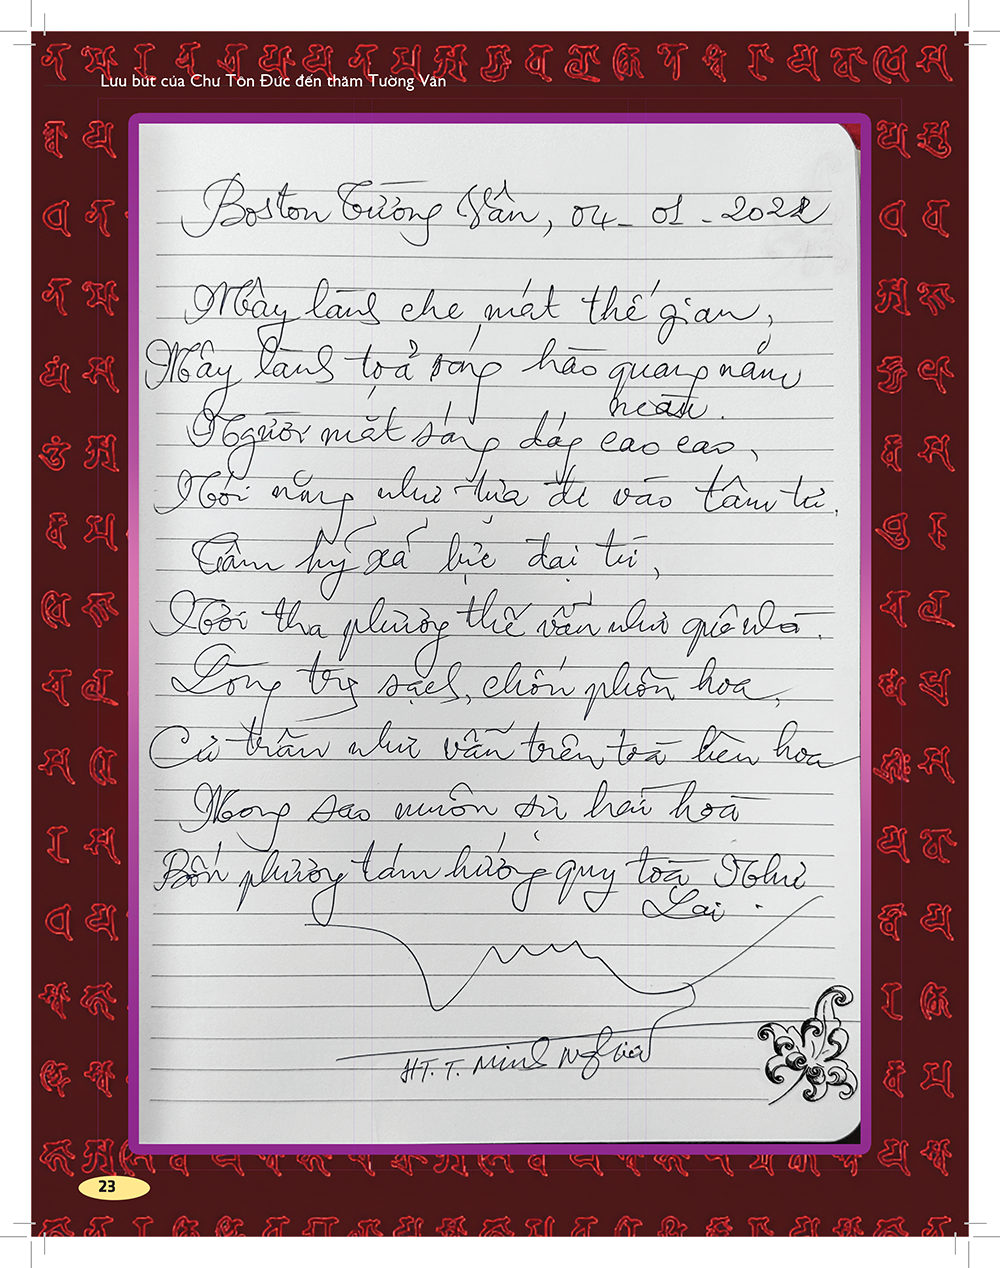 Lưu bút của Chư Tôn Đức đến thăm Tường Vân
Boston Tường Vân, 04 - 01 - 2022
Mây lành che mát thế gian,
Mây lành toả sáng hào quang nắm
Người mắt sáng dáng cao cao,
Nói năng như lửa đi vào tâm tư.
Tâm hỷ xả lực đại từ,
Nơi tha phương thế vẫn như quê nhà.
Lòng trg sạch, chốn phồn hoa,
Cư trần như vẫn trên toà liên hoa
Mong sao muôn sự hài hoà
Bốn phương tám hướng quy toà Như
Lai.
HT. T. Minh Nghĩa
23